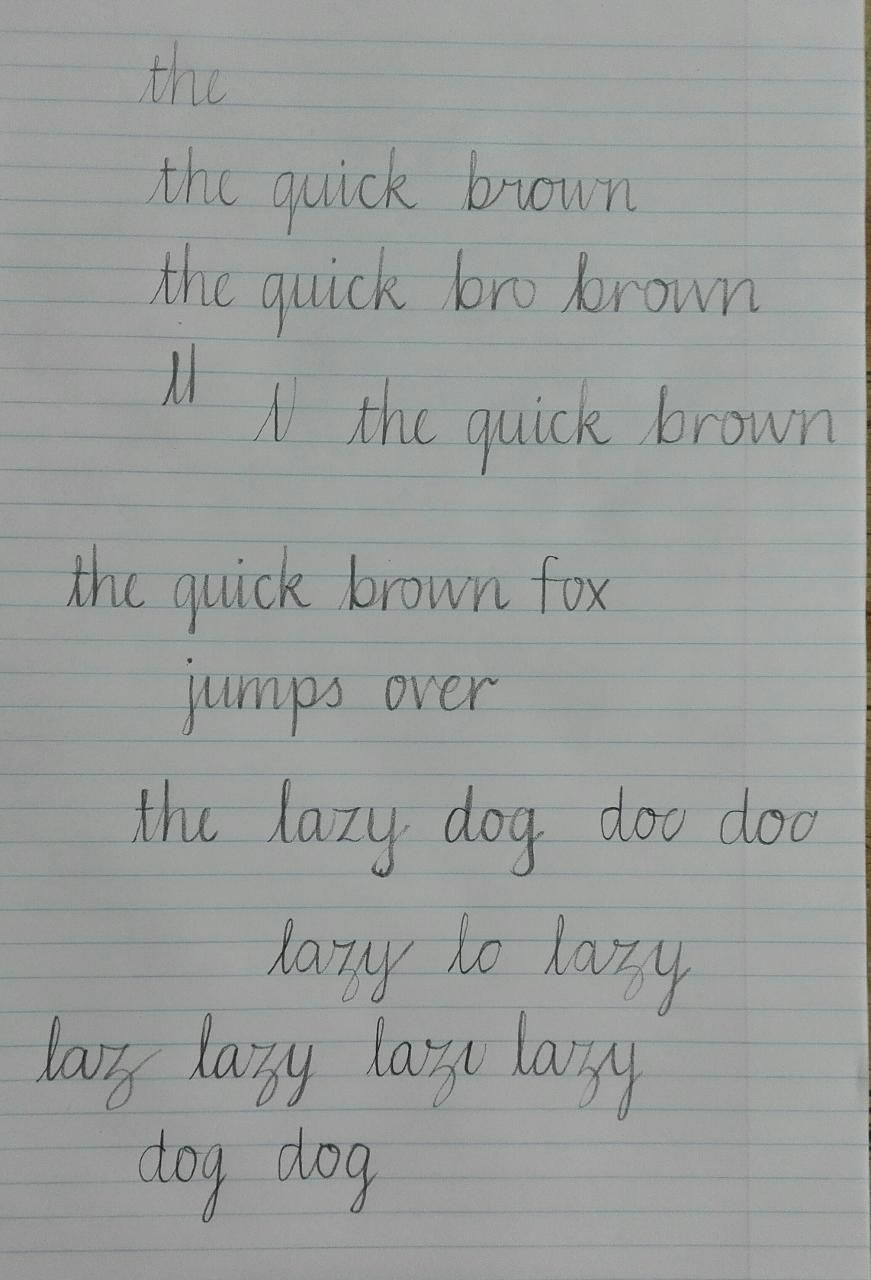 the
the quick brown
the quick bro brown
M
N the quick brown
the quick brown fox
jumps over
the lazy dog doo doo
lazy lo lazy
laz lazy lazi lazy
dog dog